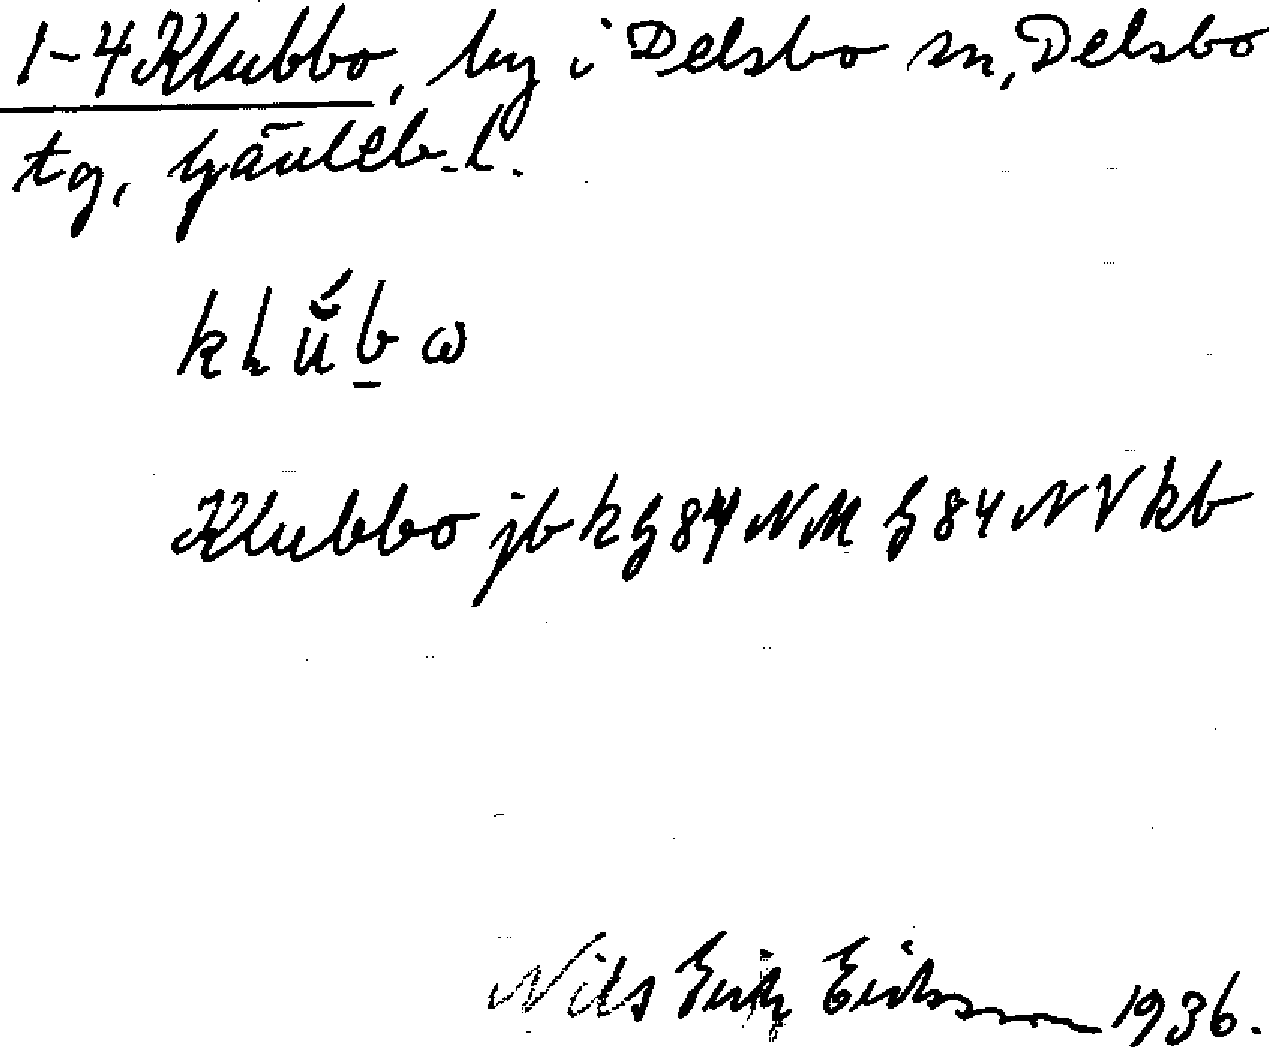 1-4 Klubbo, by i Delsbo sn, Delsbo
tg, Gävleb. l.
klŭ́b̲ω
Klubbo jb kg 84 NM g 84 NV kb
Nils Erik Eriksson 1936.